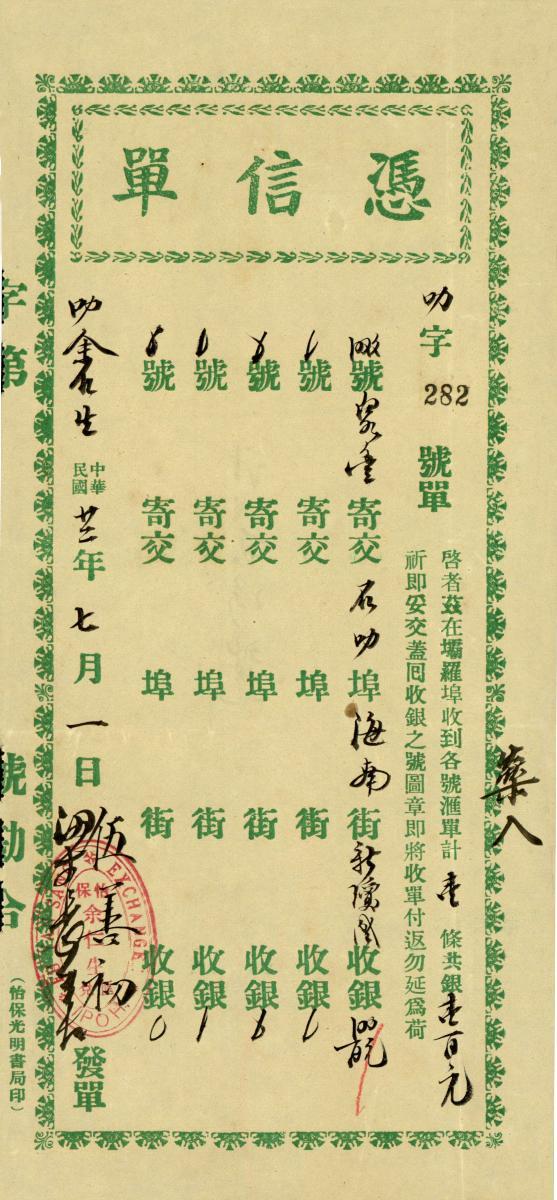 憑信單
叻字282號單
啓者茲在壩羅埠收到各號滙單計壹條共銀壹百元
祈即妥交蓋囘收銀之號圖章即將收單付返勿延爲荷
號 寄交石叻埠海南街新瓊 收銀
號 寄交 埠 街 收銀
號 寄交 埠 街 收銀
號 寄交 埠 街 收銀
號 寄交 埠 街 收銀
叻余仁生
中華民國廿三年七月一日 伍善初 發單
EXCHANGE
怡保
余仁生
IPOH
藥入
字第 號勘合
（怡保光明書局印）